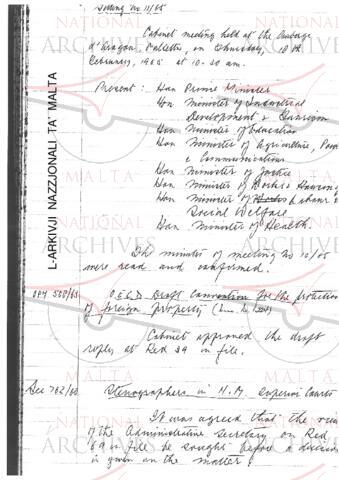 Meeting no 11/65
Cabinet meeting held at the Auberge
d'Aragon, Valletta, on Thursday, 18th
February, 1965 at 10.30 am.
Present : Hon Prime Minister
Hon Minister of Industrial
Development & Tourism
Hon Minister of Education
Hon Minister of Agriculture, Power
& Communications
Hon Minister of Justice
Hon Minister of Works & Housing
Hon Minister of Labour &
Social Welfare
Hon Minister of Health.
The minutes of meeting no 10/65
were read and confirmed.
OPM 508/63 O.E.C.D. Draft Convention for the protection
of foreign property
Cabinet approved the draft
reply at Red 39 in file.
Sec 762/60 Stenographers in H.M. Superior Courts
It was agreed that the views
of the Administrative Secretary on Red
69 in file be sought before a decision
is given on the matter.
L-ARKIVJI NAZZJONALI TA' MALTA
NATIONAL
ARCHIVES
MALTA